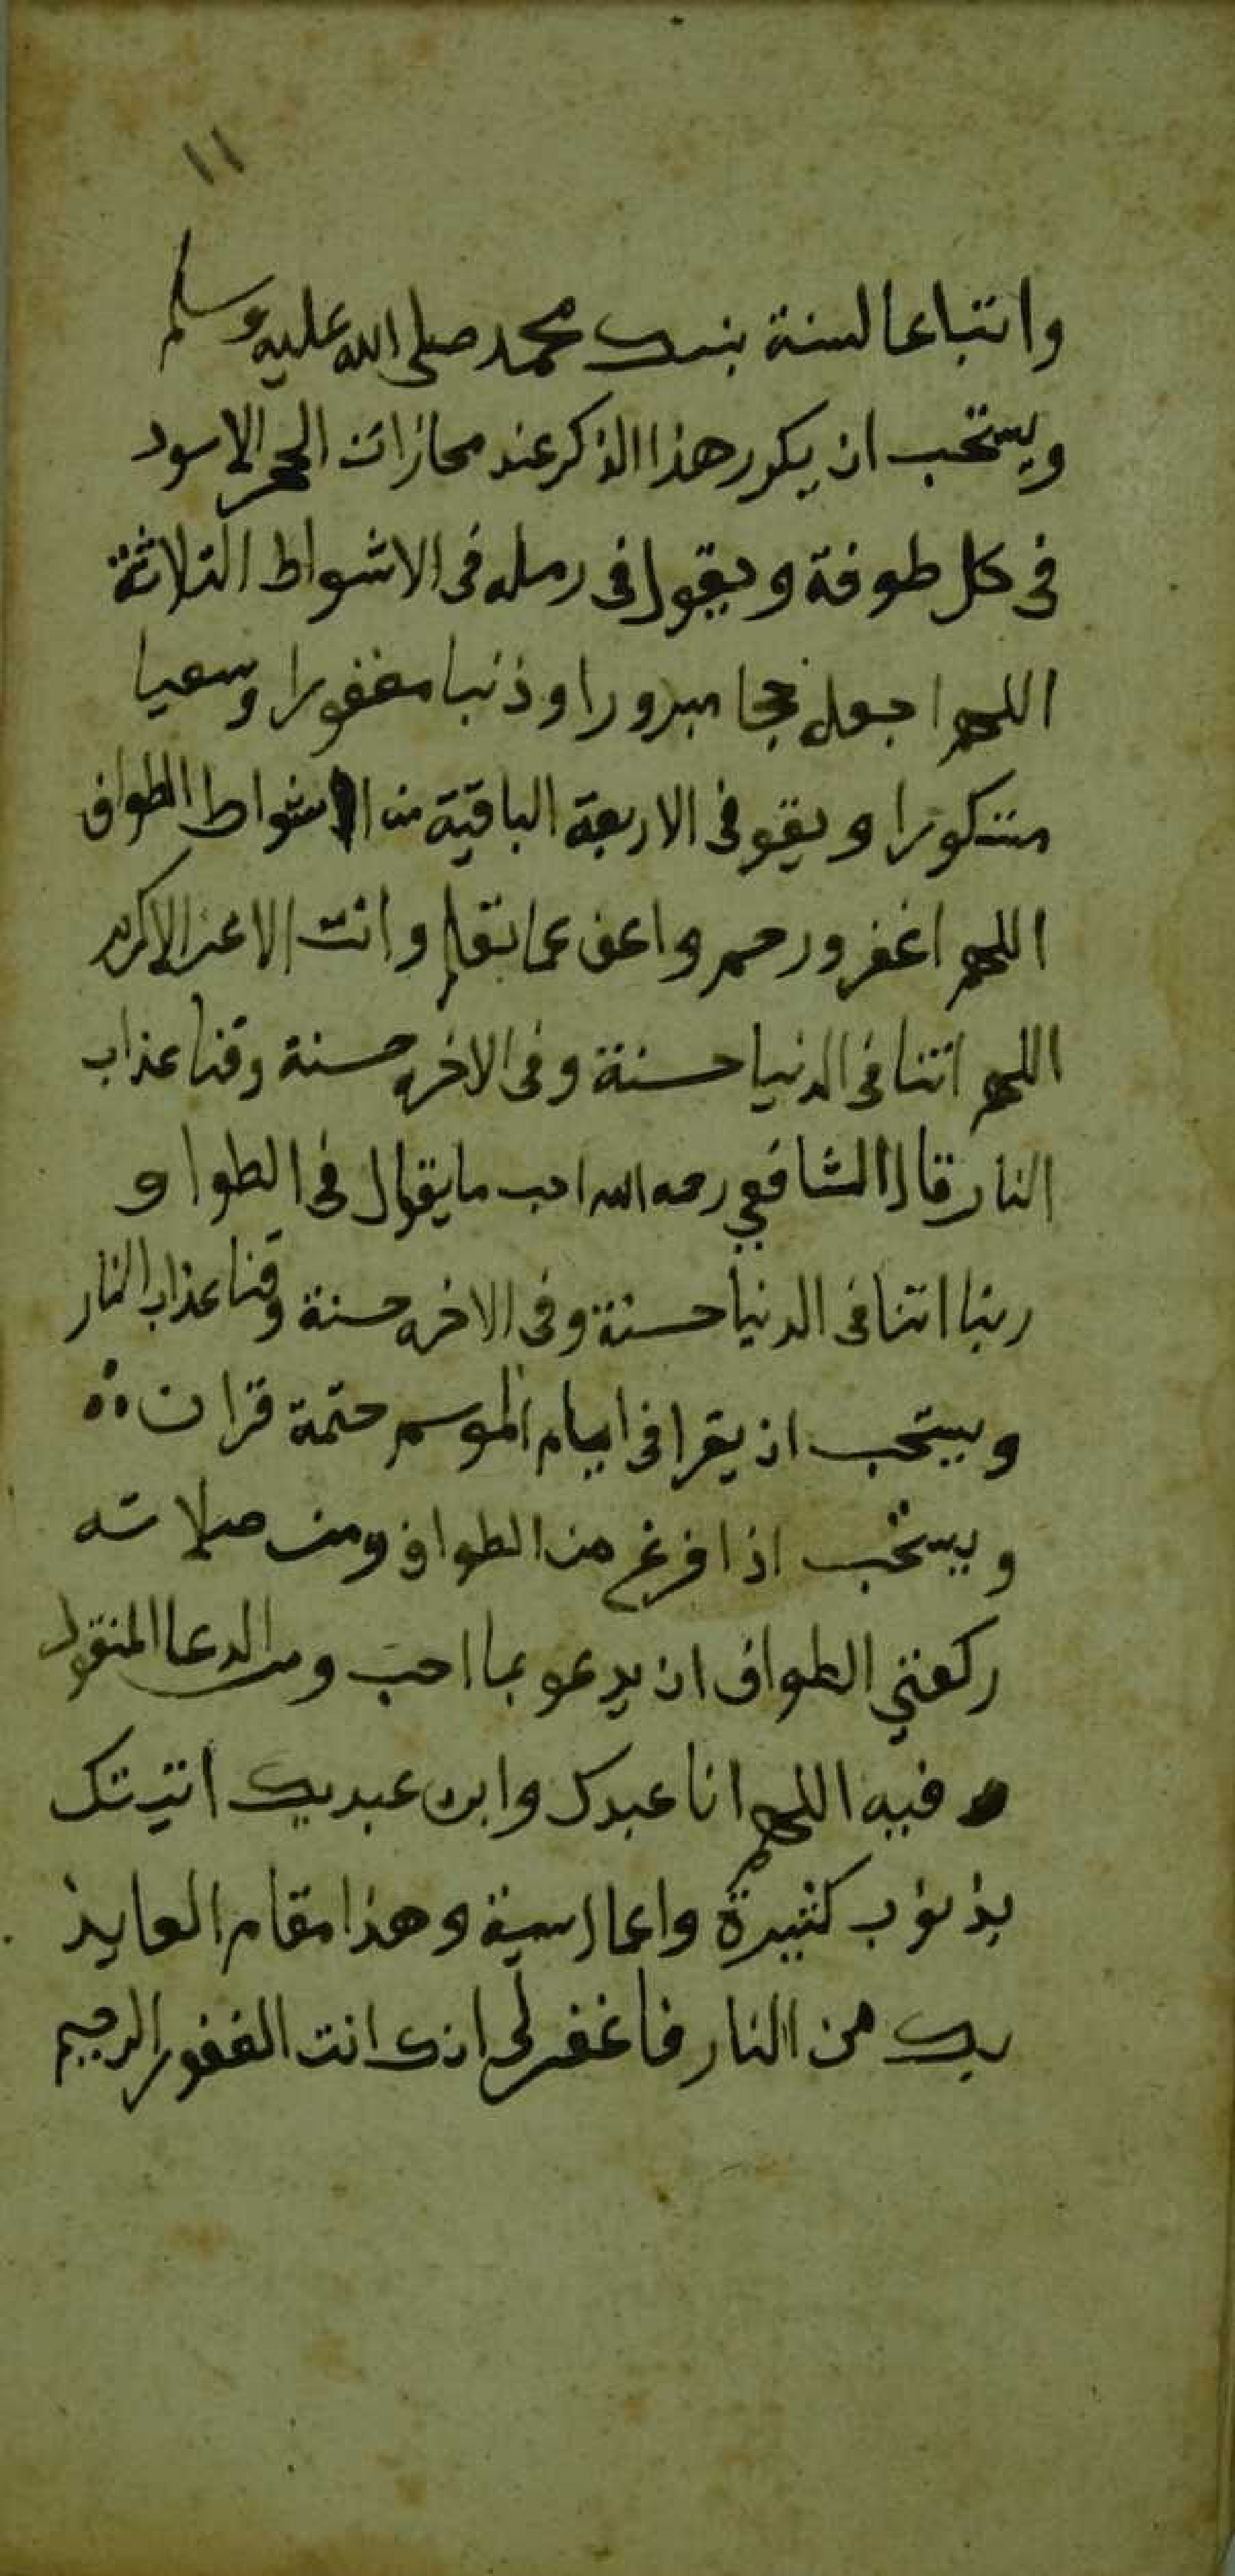 ١١
واتباعا لسنة بنيك محمد صلى الله عليه وسلم
ويستحب ان يكرر هذا الذكر عند محازات الحجر الاسود
فى كل طوفة ويقول فى رمله فى الاشواط الثلاثة
اللهم اجعله حجا مبرورا وذنبا مغفورا وسعيا
مشكورا ويقو فى الاربعة الباقية من اشواط الطواف
اللهم اغفر ورحم واعف عما تعلم وانت الاعز الاكرم
اللهم اتنا فى الدنيا حسنة وفى الاخره حسنة وقنا عذاب
النار قال الشافعي رحمه الله احب ما يقال فى الطوا و
ربنا اتنا فى الدنيا حسنة وفى الاخره حسنة وقنا عذاب النار
ويستحب ان يقرا فى ايام الموسم ختمة قران
ويستحب اذا فرغ من الطواف ومن صلاته
ركعتي الطواف ان يدعو بما احب ومن الدعا المنقول
فيه اللهم انا عبدك وابن عبديك اتيتك
بذنوب كثيرة واعمال سية وهذا مقام العايذ
بك من النار فاغفر لى انك انت الغفور الرحيم